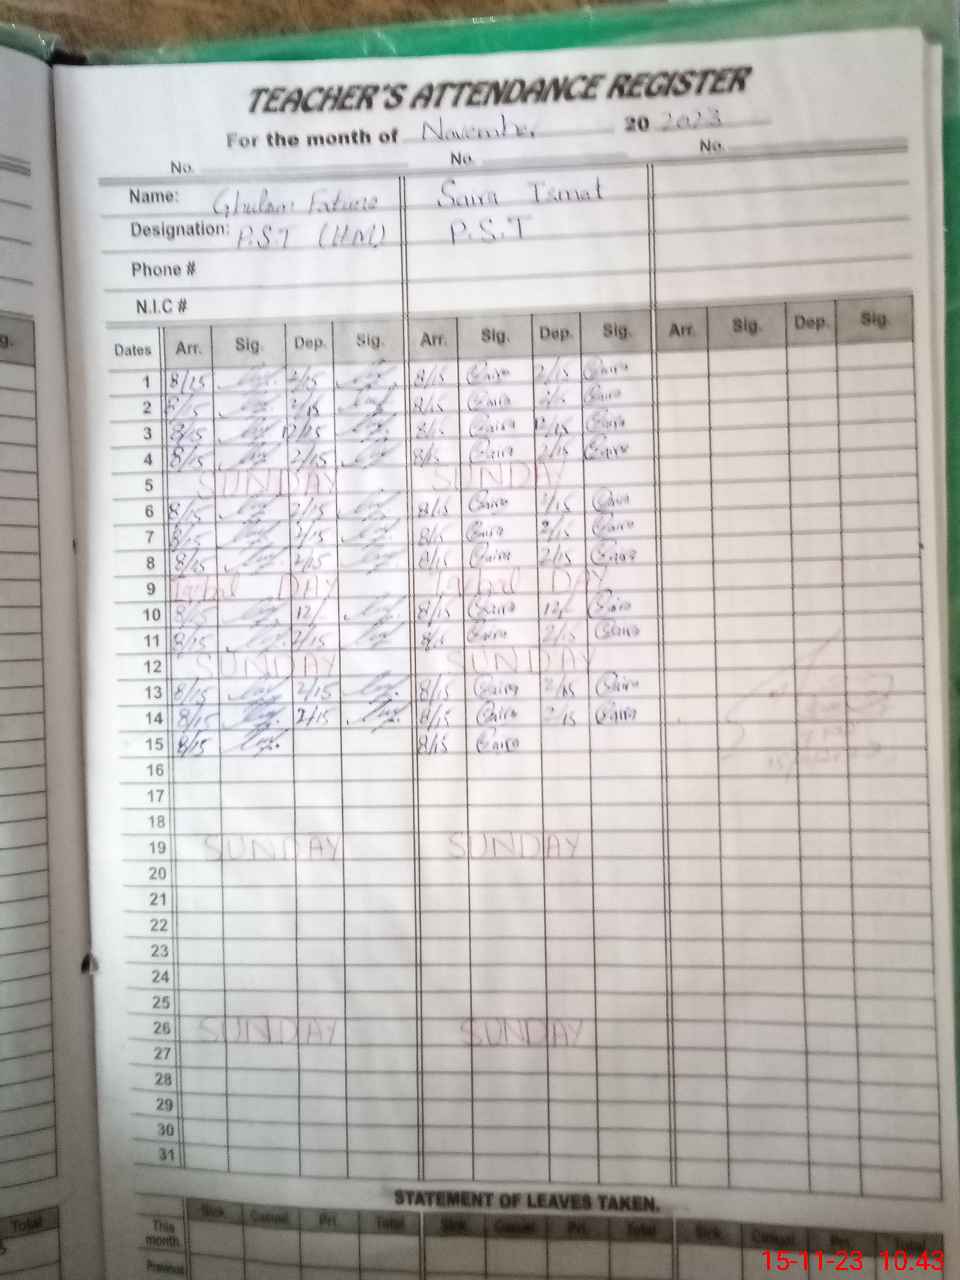 TEACHER'S ATTENDANCE REGISTER
For the month of November 20 2023
No. No. No.
Name: Ghulam Saira Ismat
Designation: P.S.T (H.M) P.S.T
Phone #
N.I.C #
Dates Arr. Sig. Dep. Sig. Arr. Sig. Dep. Sig. Arr. Sig. Dep. Sig.
1 8/15 2/15 8/15 Saira 2/15 Saira
2 8/15 2/15 8/15 Saira 2/15 Saira
3 8/15 12/15 8/15 Saira 12/15 Saira
4 8/15 2/15 8/15 Saira 2/15 Saira
5 SUNDAY SUNDAY
6 8/15 2/15 8/15 Saira 2/15 Saira
7 8/15 2/15 8/15 Saira 2/15 Saira
8 8/15 2/15 8/15 Saira 2/15 Saira
9 Iqbal DAY Iqbal DAY
10 8/15 12/ 8/15 Saira 12/ Saira
11 8/15 2/15 8/15 Saira 2/15 Saira
12 SUNDAY SUNDAY
13 8/15 2/15 8/15 Saira 2/15 Saira
14 8/15 2/15 8/15 Saira 2/15 Saira
15 8/15 8/15 Saira
16
17
18
19 SUNDAY SUNDAY
20
21
22
23
24
25
26 SUNDAY SUNDAY
27
28
29
30
31
STATEMENT OF LEAVES TAKEN.
Sick Casual Pri. Total Sick Casual Pri. Total Sick Casual Pri. Total
This month
Previous
Total
15-11-23 10:43